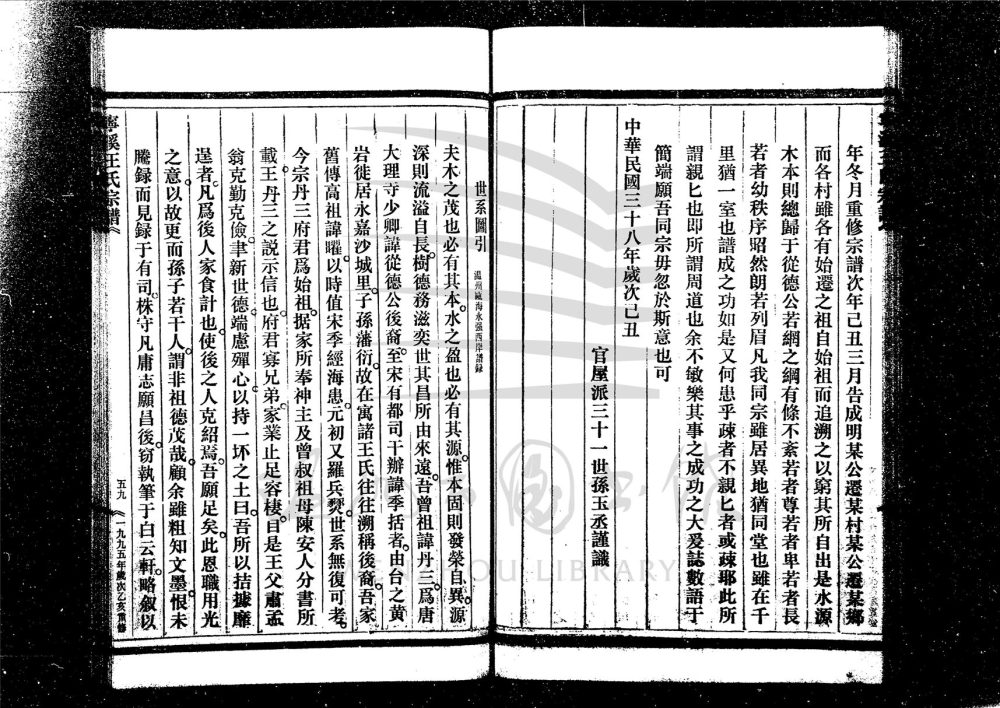 年冬月重修宗譜次年己丑三月告成明某公遷某村某公遷某鄉
而各村雖各有始遷之祖自始祖而追溯之以窮其所自出是水源
木本則總歸于從德公若網之綱有條不紊若者尊若者卑若者長
若者幼秩序昭然朗若列眉凡我同宗雖居異地猶同堂也雖在千
里猶一室也譜成之功如是又何患乎疎者不親匕者或疎耶此所
謂親匕也即所謂周道也余不敏樂其事之成功之大爰誌數語于
簡端願吾同宗毋忽於斯意也可
中華民國三十八年歲次己丑
官屋派三十一世孫玉丞謹識
世系圖引 溫州甌海永强西岸譜録
夫木之茂也必有其本。水之盈也必有其源。惟本固則發榮自異。源
深則流溢自長。樹德務滋奕世其昌所由來遠。吾曾祖諱丹三。爲唐
大理寺少卿諱從德公後裔。至宋有都司干辦諱季括者。由台之黄
岩徙居永嘉沙城里。子孫藩衍。故在寓諸王氏往往溯稱後裔。吾家
舊傳高祖諱曜。以時值宋季經海患元初又羅兵燹。世系無復可考。
今宗丹三府君爲始祖。据家所奉神主及曾叔祖母陳安人分書所
載王丹三之說示信也。府君寡兄弟。家業止足容棲。日是王父肅孟
翁克勤克儉。聿新世德。端慮殫心。以持一坏之土。曰吾所以拮據靡
遑者。凡爲後人家食計也。使後之人克紹焉。吾願足矣。此恩職用光
之意。以故更而孫子若干人。謂非祖德茂哉。顧余雖粗知文墨。恨未
騰録而見録于有司。株守凡庸。志願昌後。窃執筆于白云軒。略叙以
寧溪王氏宗譜
五九
一九九五年歲次乙亥重修